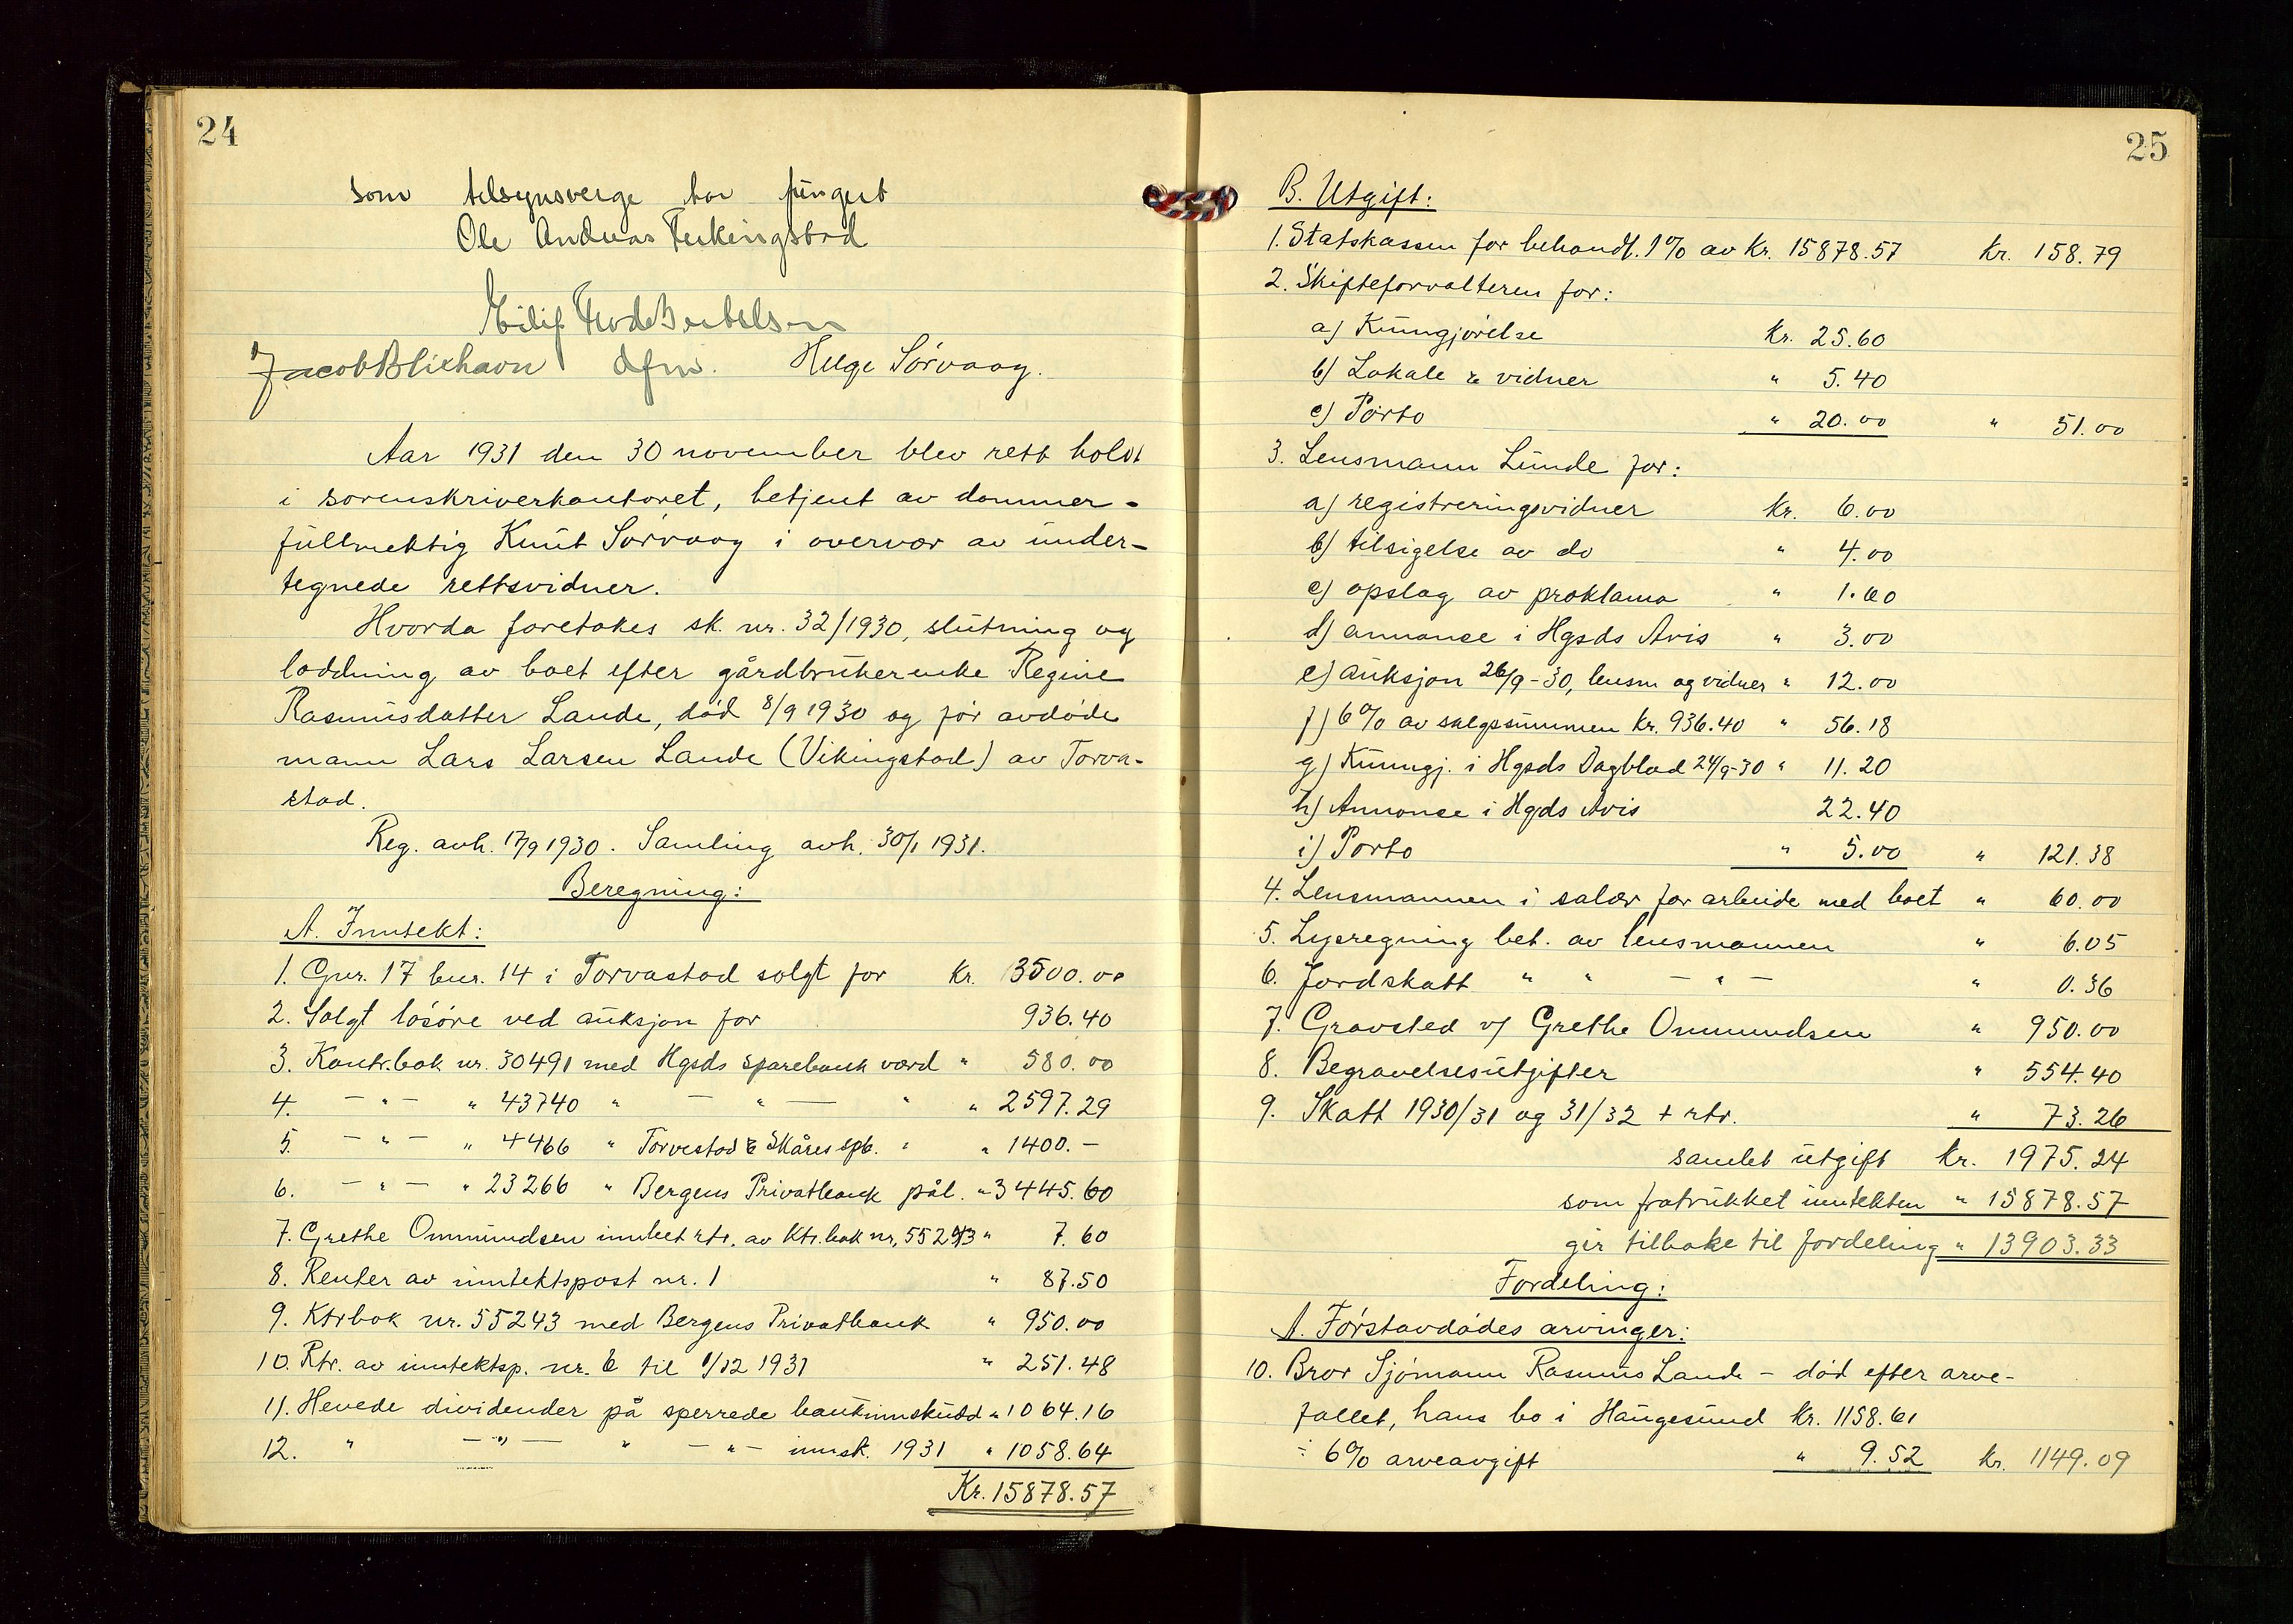 24
som tilsynsverge har fungert
Ole Andreas Ferkingstad
Eilif Frode Bertelsen
Jacob Blixhavn dfm. Helge Sørvaag.
Aar 1931 den 30 november blev rett holdt
i sorenskriverkontoret, betjent av dommer-
fullmektig Knut Sørvaag i overvær av under-
tegnede rettsvidner.
Hvorda foretokes sk. nr. 32/1930, slutning og
loddning av boet efter gårdbrukerenke Regine
Rasmusdatter Lande, død 8/9 1930 og før avdøde
mann Lars Larsen Lande (Vikingstad) av Torva-
stad.
Reg. avh. 17/9 1930. Samling avh. 30/1 1931.
Beregning:
A. Inntekt:
1. Gnr. 17 bnr. 14 i Torvastad solgt for kr. 3500.00
2. Solgt løsøre ved auksjon for 936.40
3. Kontr.bok nr. 30491 med Hgsds sparebank værd " 580.00
4. — " — " 43740 " — " — " " 2597.29
5. — " — " 4466 " Torvestad & Skåres spb. " " 1400.—
6. — " — " 23266 " Bergens Privatbank pål. " 3445.60
7. Grethe Ommundsen innbet rtr. av Ktr.bok nr. 55243 " 7.60
8. Renter av inntektspost nr. 1 " 87.50
9. Ktrbok nr. 55243 med Bergens Privatbank " 950.00
10. Rtr. av inntektsp. nr. 6 til 1/12 1931 " 251.48
11. Hevede dividender på sperrede bankinnskudd " 1064.16
12. " — " — " — " — innsk. 1931 " 1058.64
Kr. 15878.57
25
B. Utgift:
1. Statskassen for behandl. 1% av kr. 15878.57 kr. 158.79
2. Skifteforvalteren for:
a) Kunngjørelse kr. 25.60
b) Lokale & vidner " 5.40
c) Porto " 20.00 " 51.00
3. Lensmann Lunde for:
a) registreringsvidner kr. 6.00
b) tilsigelse av do " 4.00
c) opslag av proklama " 1.60
d) annonse i Hgsds Avis " 3.00
e) auksjon 26/9-30, lensm og vidner " 12.00
f) 6% av salgssummen kr. 936.40 " 56.18
g) Kunngj. i Hgsds Dagblad 24/9-30 " 11.20
h) Annonse i Hgds Avis 22.40
i) Porto " 5.00 " 121.38
4. Lensmannen i salær for arbeide med boet " 60.00
5. Lysregning bet. av lensmannen " 6.05
6. Jordskatt " " — " — " 0.36
7. Gravsted v/ Grethe Ommundsen " 950.00
8. Begravelsesutgifter " 554.40
9. Skatt 1930/31 og 31/32 + rtr. " 73.26
samlet utgift kr. 1975.24
som fratrukket inntekten " 15878.57
gir tilbake til fordeling " 13903.33
Fordeling:
A. Førstavdødes arvinger:
10. Bror Sjømann Rasmus Lande - død efter arve-
fallet, hans bo i Haugesund kr. 1158.61
÷ 6% arveavgift " 9.52 kr. 1149.09